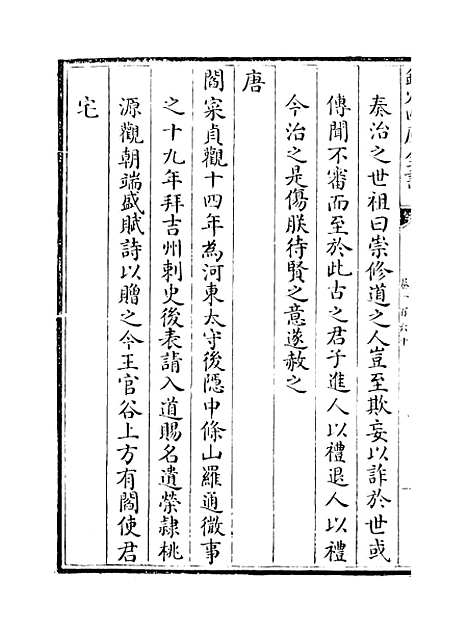 秦治之世祖曰崇修道之人豈至欺妄以詐於世或
傳聞不審而至於此古之君子進人以禮退人以禮
今治之是傷朕待賢之意遂赦之
唐
閻寀貞觀十四年為河東太守後隱中條山羅通微事
之十九年拜吉州刺史後表請入道賜名遺榮隷桃
源觀朝端盛賦詩以贈之今王官谷上方有閻使君
宅